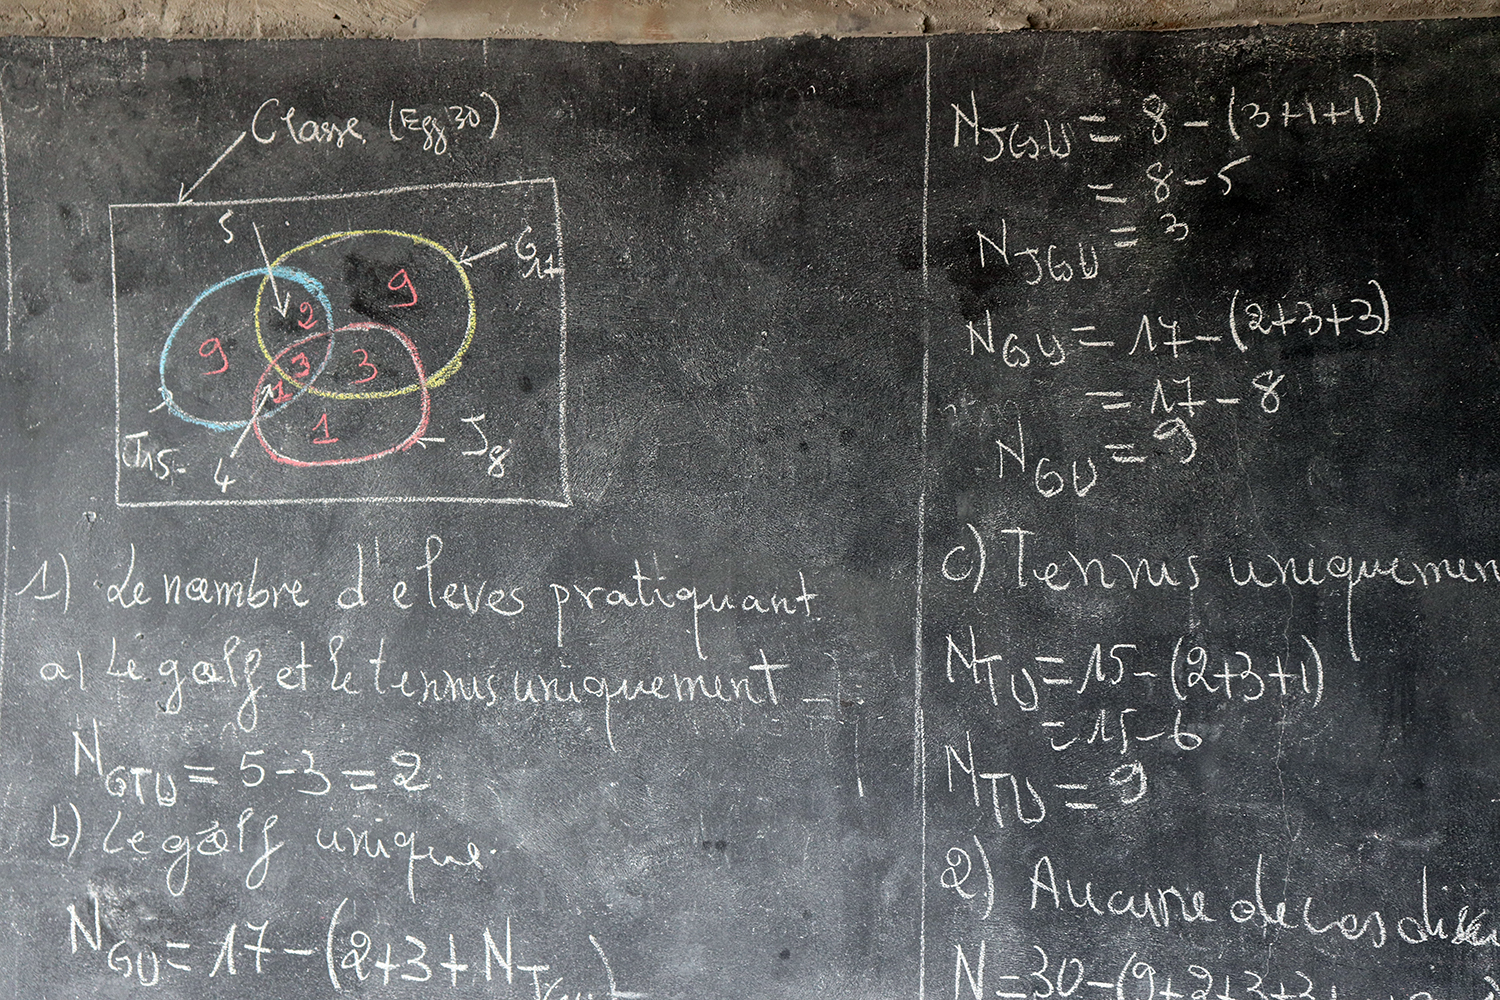 Classe (Eff 30)
5
G17
9
2
9
3
3
1
1
T15
4
J8
1) Le nombre d'eleves pratiquant
a) Le golf et le tennis uniquement
NGTU = 5-3 = 2
b) Le golf unique
NGU = 17-(2+3+NJGU)
NJGU = 8-(3+1+1)
= 8-5
NJGU = 3
NGU = 17-(2+3+3)
= 17-8
NGU = 9
c) Tennis uniquemen
NTU = 15-(2+3+1)
= 15-6
NTU = 9
2) Aucune de ces
N=30-(9+2+3+3+